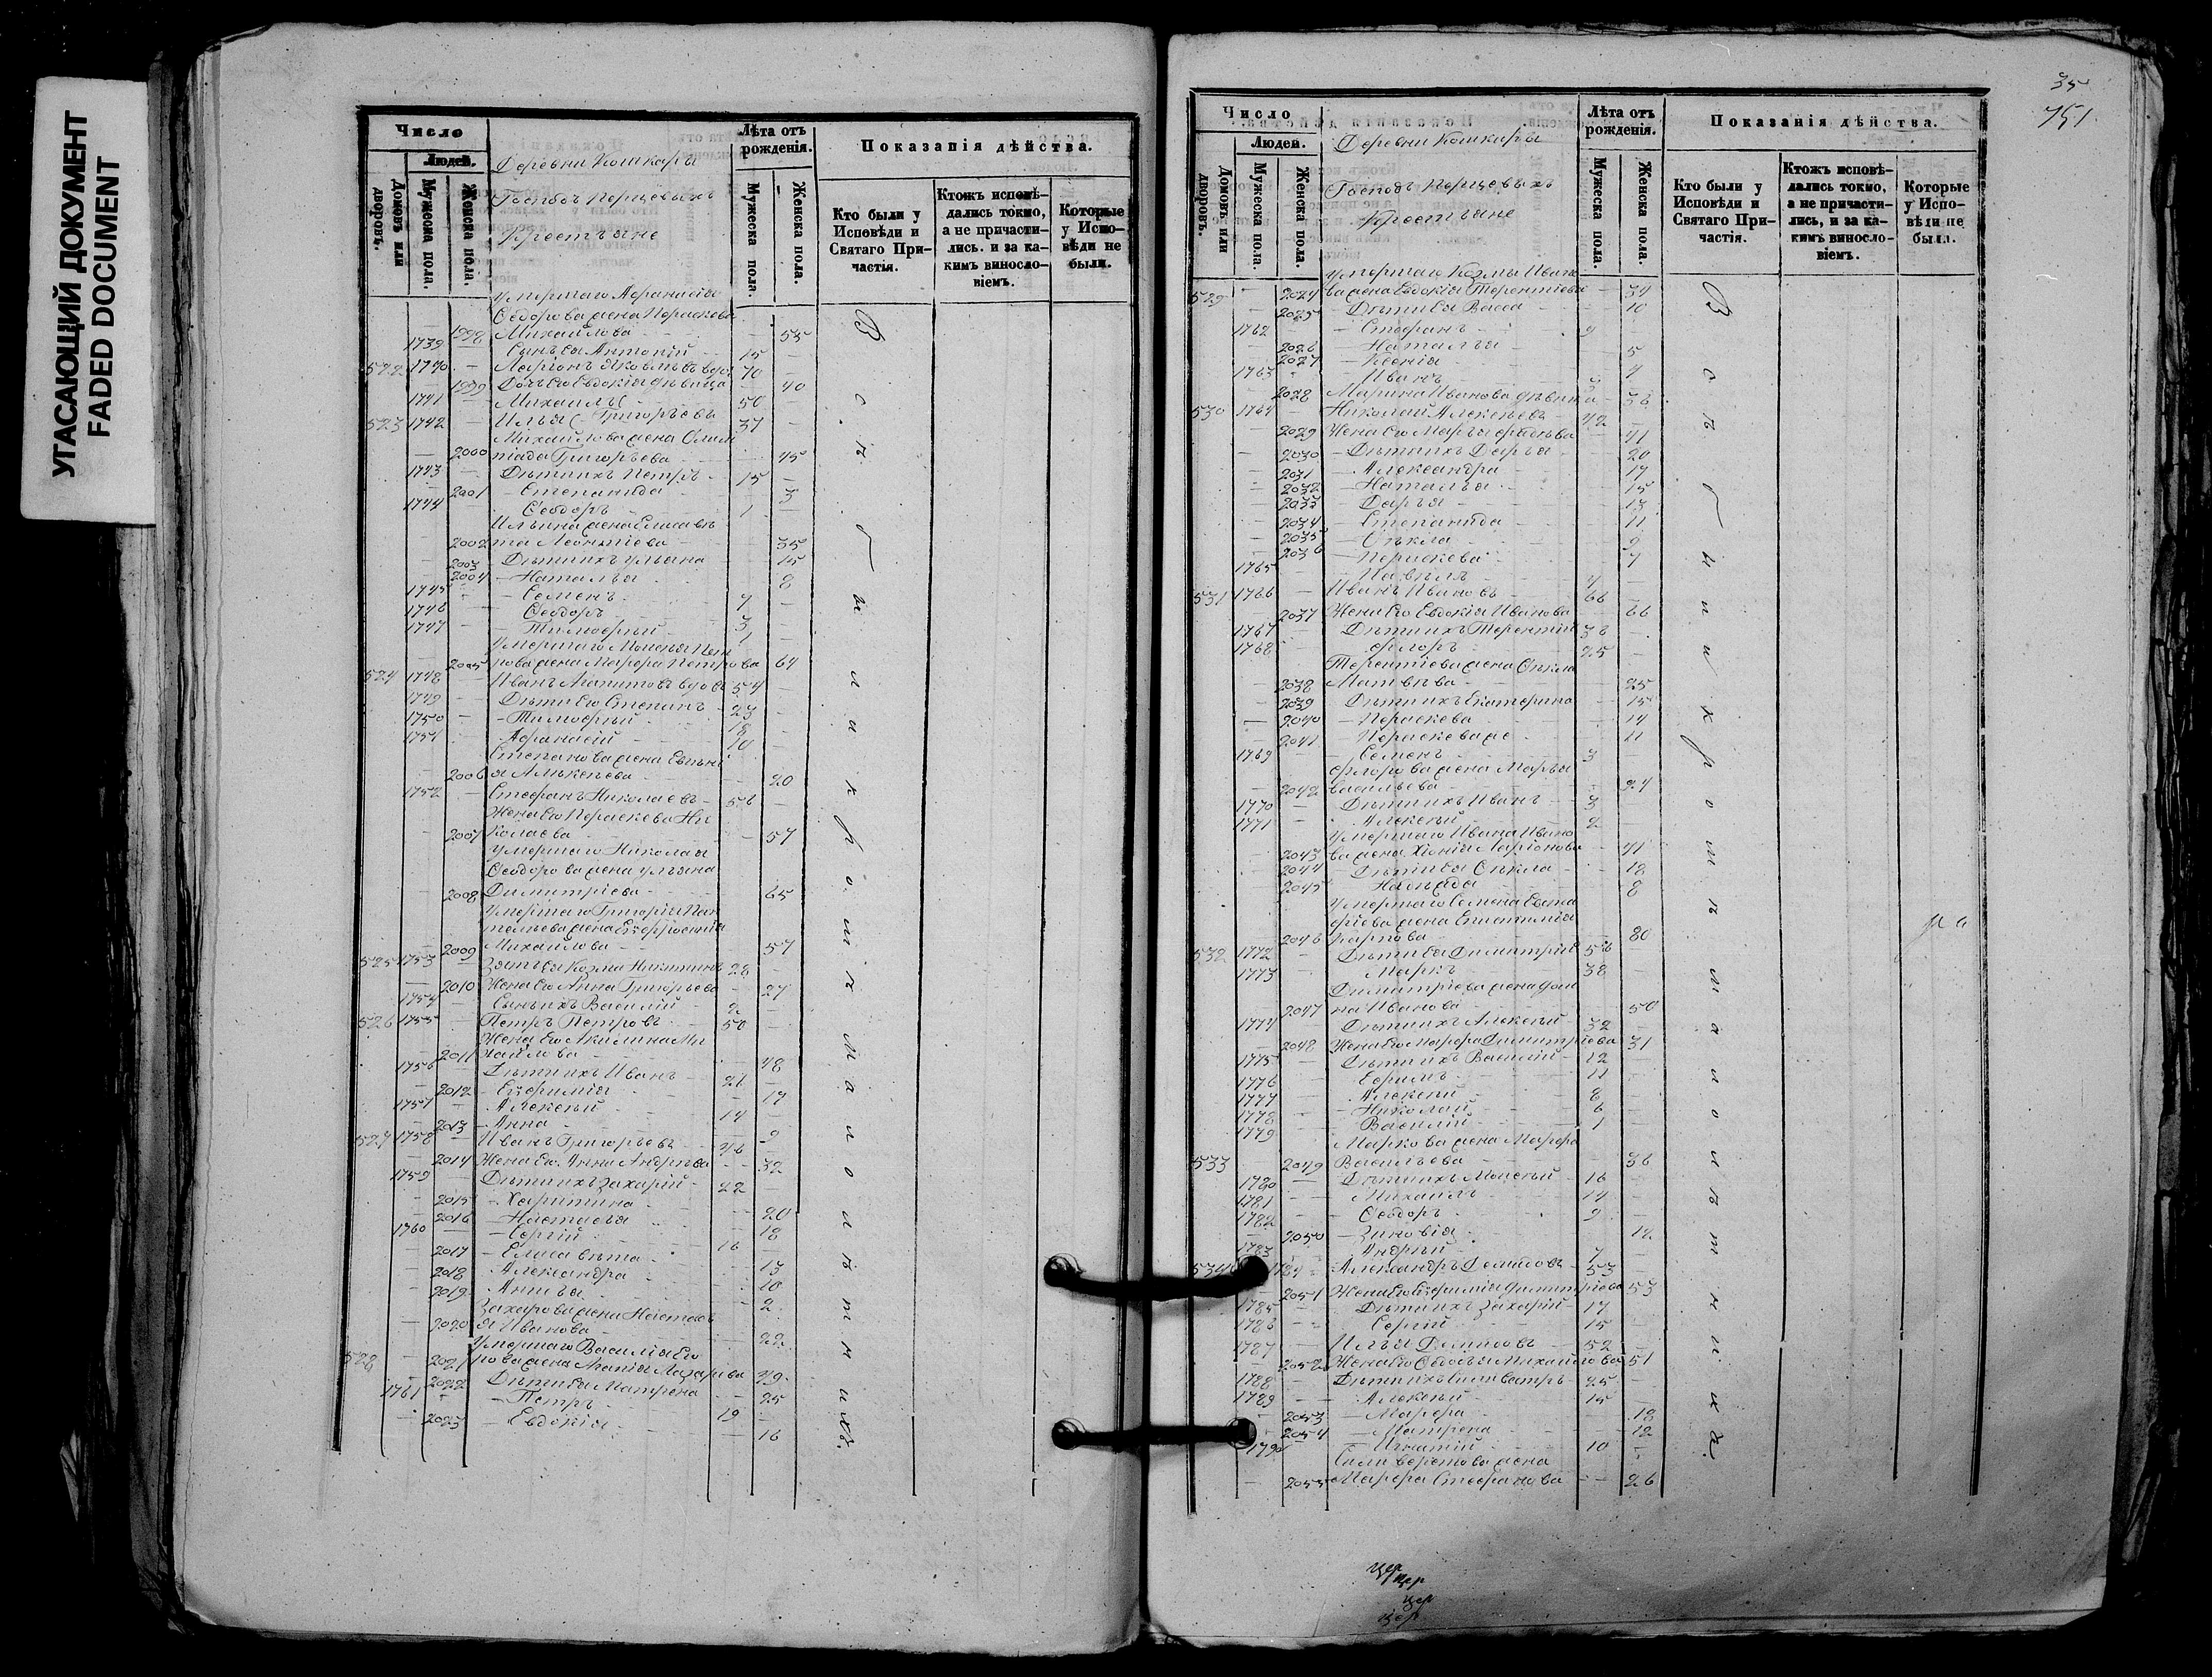 УГАСАЮЩИЙ ДОКУМЕНТ
FADED DOCUMENT
Число
Людей.
Домовъ или дворовъ.
Мужеска пола.
Женска пола.
Деревни Кошкары
Господъ Перцевыхъ
Крестьяне
Лѣта отъ рожденія.
Мужеска пола.
Женска пола.
Показанія дѣйства.
Кто были у Исповѣди и Святаго Причастія.
Ктожъ исповѣдались токмо, а не причастились. и за какимъ винословіемъ.
Которые у Исповѣди не были.
умершаго Афанасія
Ѳеодорова жена Параскева
1998 Михайлова - 55
1739 - Сынъ ея Антоній - 15
522 1740 - Ларіонъ Яковлевъ вдов 70
- 1999 Дочь его Евдокія дѣвица 40
1741 - Михаилъ 50 -
523 1742 - Илья Григорьевъ 37 -
Михайлова жена Олим
- 2000 піада Григорьева - 45
1743 - Дѣти ихъ Петръ - 15 -
- 2001 - Степанида - 3
1744 - Ѳеодоръ - 1 -
Ильина жена Елисаве
- 2002 та Леонтіева - 35
- 2003 Дѣти ихъ Ульяна - 15
2004 - Наталья - 8
1745 - Семенъ - 7 -
1746 - Ѳеодоръ - 3 -
1747 - Тимофей - 1 -
умершаго Моисея Пет
- 2005 рова жена Марфа Петрова 64
524 1748 - Иванъ Агапитовъ вдовъ 54
1749 - Дѣти его Степанъ - 23 -
1750 - Тимофей - 18
1751 - Афанасій - 10 -
Степанова жена Евгені
- 2006 я Алексеева - 20
1752 - Стефанъ Николаевъ - 56 -
Жена его Параскева Ни
- 2007 колаева - 57
умершаго Николая
Ѳеодорова жена Ульяна
- 2008 Димитріева - 65
умершаго Григорія Пан
телеева жена Евфросинія
- 2009 Михайлова - 57
525 1753 - Зять ея Козма Никитинъ 28 -
- 2010 Жена его Анна Григорьева - 27
1754 - Сынъ ихъ Василій - 2 -
526 1755 - Петръ Петровъ - 50 -
Жена его Акилина Ми
- 2011 хайлова - 48
1756 - Дѣти ихъ Иванъ - 21 -
- 2012 - Евфимія - 17
1757 - Алексей - 14 -
- 2013 - Анна - 9
527 1758 - Иванъ Григорьевъ - 46 -
- 2014 Жена его Анна Андреева - 32
1759 - Дѣти ихъ Захарій - 22
- 2015 - Харитина - 20
- 2016 - Настасья - 18
1760 - Сергій - 16 -
- 2017 - Елисавета - 13
- 2018 - Александра - 10
- 2019 - Анисья - 2
Захарова жена Настась
- 2020 я Иванова - 22
умершаго Василія Его
528 - 2021 рова жена Агапія Макарова 49
- 2022 Дѣти ея Матрена - 25
1761 - Петръ - 19 -
- 2023 - Евдокія - 16
Въ с. Кобылинкромъ малолѣтнихъ.
35
751
Число
Людей.
Домовъ или дворовъ.
Мужеска пола.
Женска пола.
Деревни Кошкары
Господъ Перцевыхъ
Крестьяне
Лѣта отъ рожденія.
Мужеска пола.
Женска пола.
Показанія дѣйства.
Кто были у Исповѣди и Святаго Причастія.
Ктожъ исповѣдались токмо, а не причастились, и за какимъ винословіемъ.
Которые у Исповѣди не были.
умершаго Козмы Ивано
529 - 2024 ва жена Евдокія Терентіева - 34
- 2025 - Дѣти ея Васса - 10
1762 - Стефанъ - 9
- 2026 - Наталья - 5
- 2027 - Ксенія - 4
1763 - Иванъ - 3
- 2028 Марина Иванова дѣвица - 36
530 1764 - Николай Алексеевъ - 42 -
- 2029 Жена его Марья - 41
- 2030 - Дѣти ихъ Дарья - 20
- 2031 - Александра - 17
- 2032 - Наталья - 15
- 2033 - Дарья - 13
- 2034 - Степанида - 11
- 2035 - Ѳекла - 9
- 2036 - Параскева - 7
1765 - Павелъ - 4 -
531 1766 - Иванъ Ивановъ - 66 -
- 2037 Жена его Евдокія Иванова 66
1767 - Дѣти ихъ Терентій 36 -
1768 - Флоръ - 25 -
Терентіева жена Ѳекла
- 2038 Матвеева - 25
- 2039 Дѣти ихъ Екатерина - 15
- 2040 - Параскева - 14
- 2041 - Параскева же - 11
1769 - Семенъ - 3 -
Флорова жена Марья
- 2042 Васильева - 24
1770 - Дѣти ихъ Иванъ - 3
1771 - Алексей - 2
умершаго Ивана Ивано
- 2043 ва жена Ксенія Ларіонова - 41
- 2044 - Дѣти ея Ѳекла - 18
- 2045 - Надежда - 8
умершаго Семена Евста
фіева жена Епистимія
- 2046 Карпова - 80
532 1772 - Дѣти ея Димитрій 56
1773 - Маркъ 38 -
Димитріева жена
- 2047 на Иванова - 50
1774 - Дѣти ихъ Алексей - 32 -
- 2048 Жена его Марфа Димитріева 31
1775 - Дѣти ихъ Василій - 12
1776 - Ефимъ - 11
1777 - Алексей - 8
1778 - Николай - 6
1779 - Василій - 1
Маркова жена Марфа
533 2049 Васильева - 36
1780 - Дѣти ихъ Моисей - 16
1781 - Михаилъ - 14
1782 - Ѳеодоръ - 9
- 2050 - Зиновія - 12
1783 - Андрей - 7
534 1784 - Александръ Демидовъ - 53 -
- 2051 Жена его Евфимія Димитріева 53
1785 - Дѣти ихъ Захарій - 17
1786 - Сергій - 15
1787 - Илья Демидовъ - 52 -
- 2052 Жена его Ѳеодосья Михайлова 51
1788 - Дѣти ихъ Силиверстръ 25 -
1789 - Алексей - 15 -
- 2053 - Марфа - 18
- 2054 - Матрена - 12
1790 - Игнатій - 10 -
Силиверстова жена
- 2055 Марфа Стефанова - 26
цер
цер
цер
цер